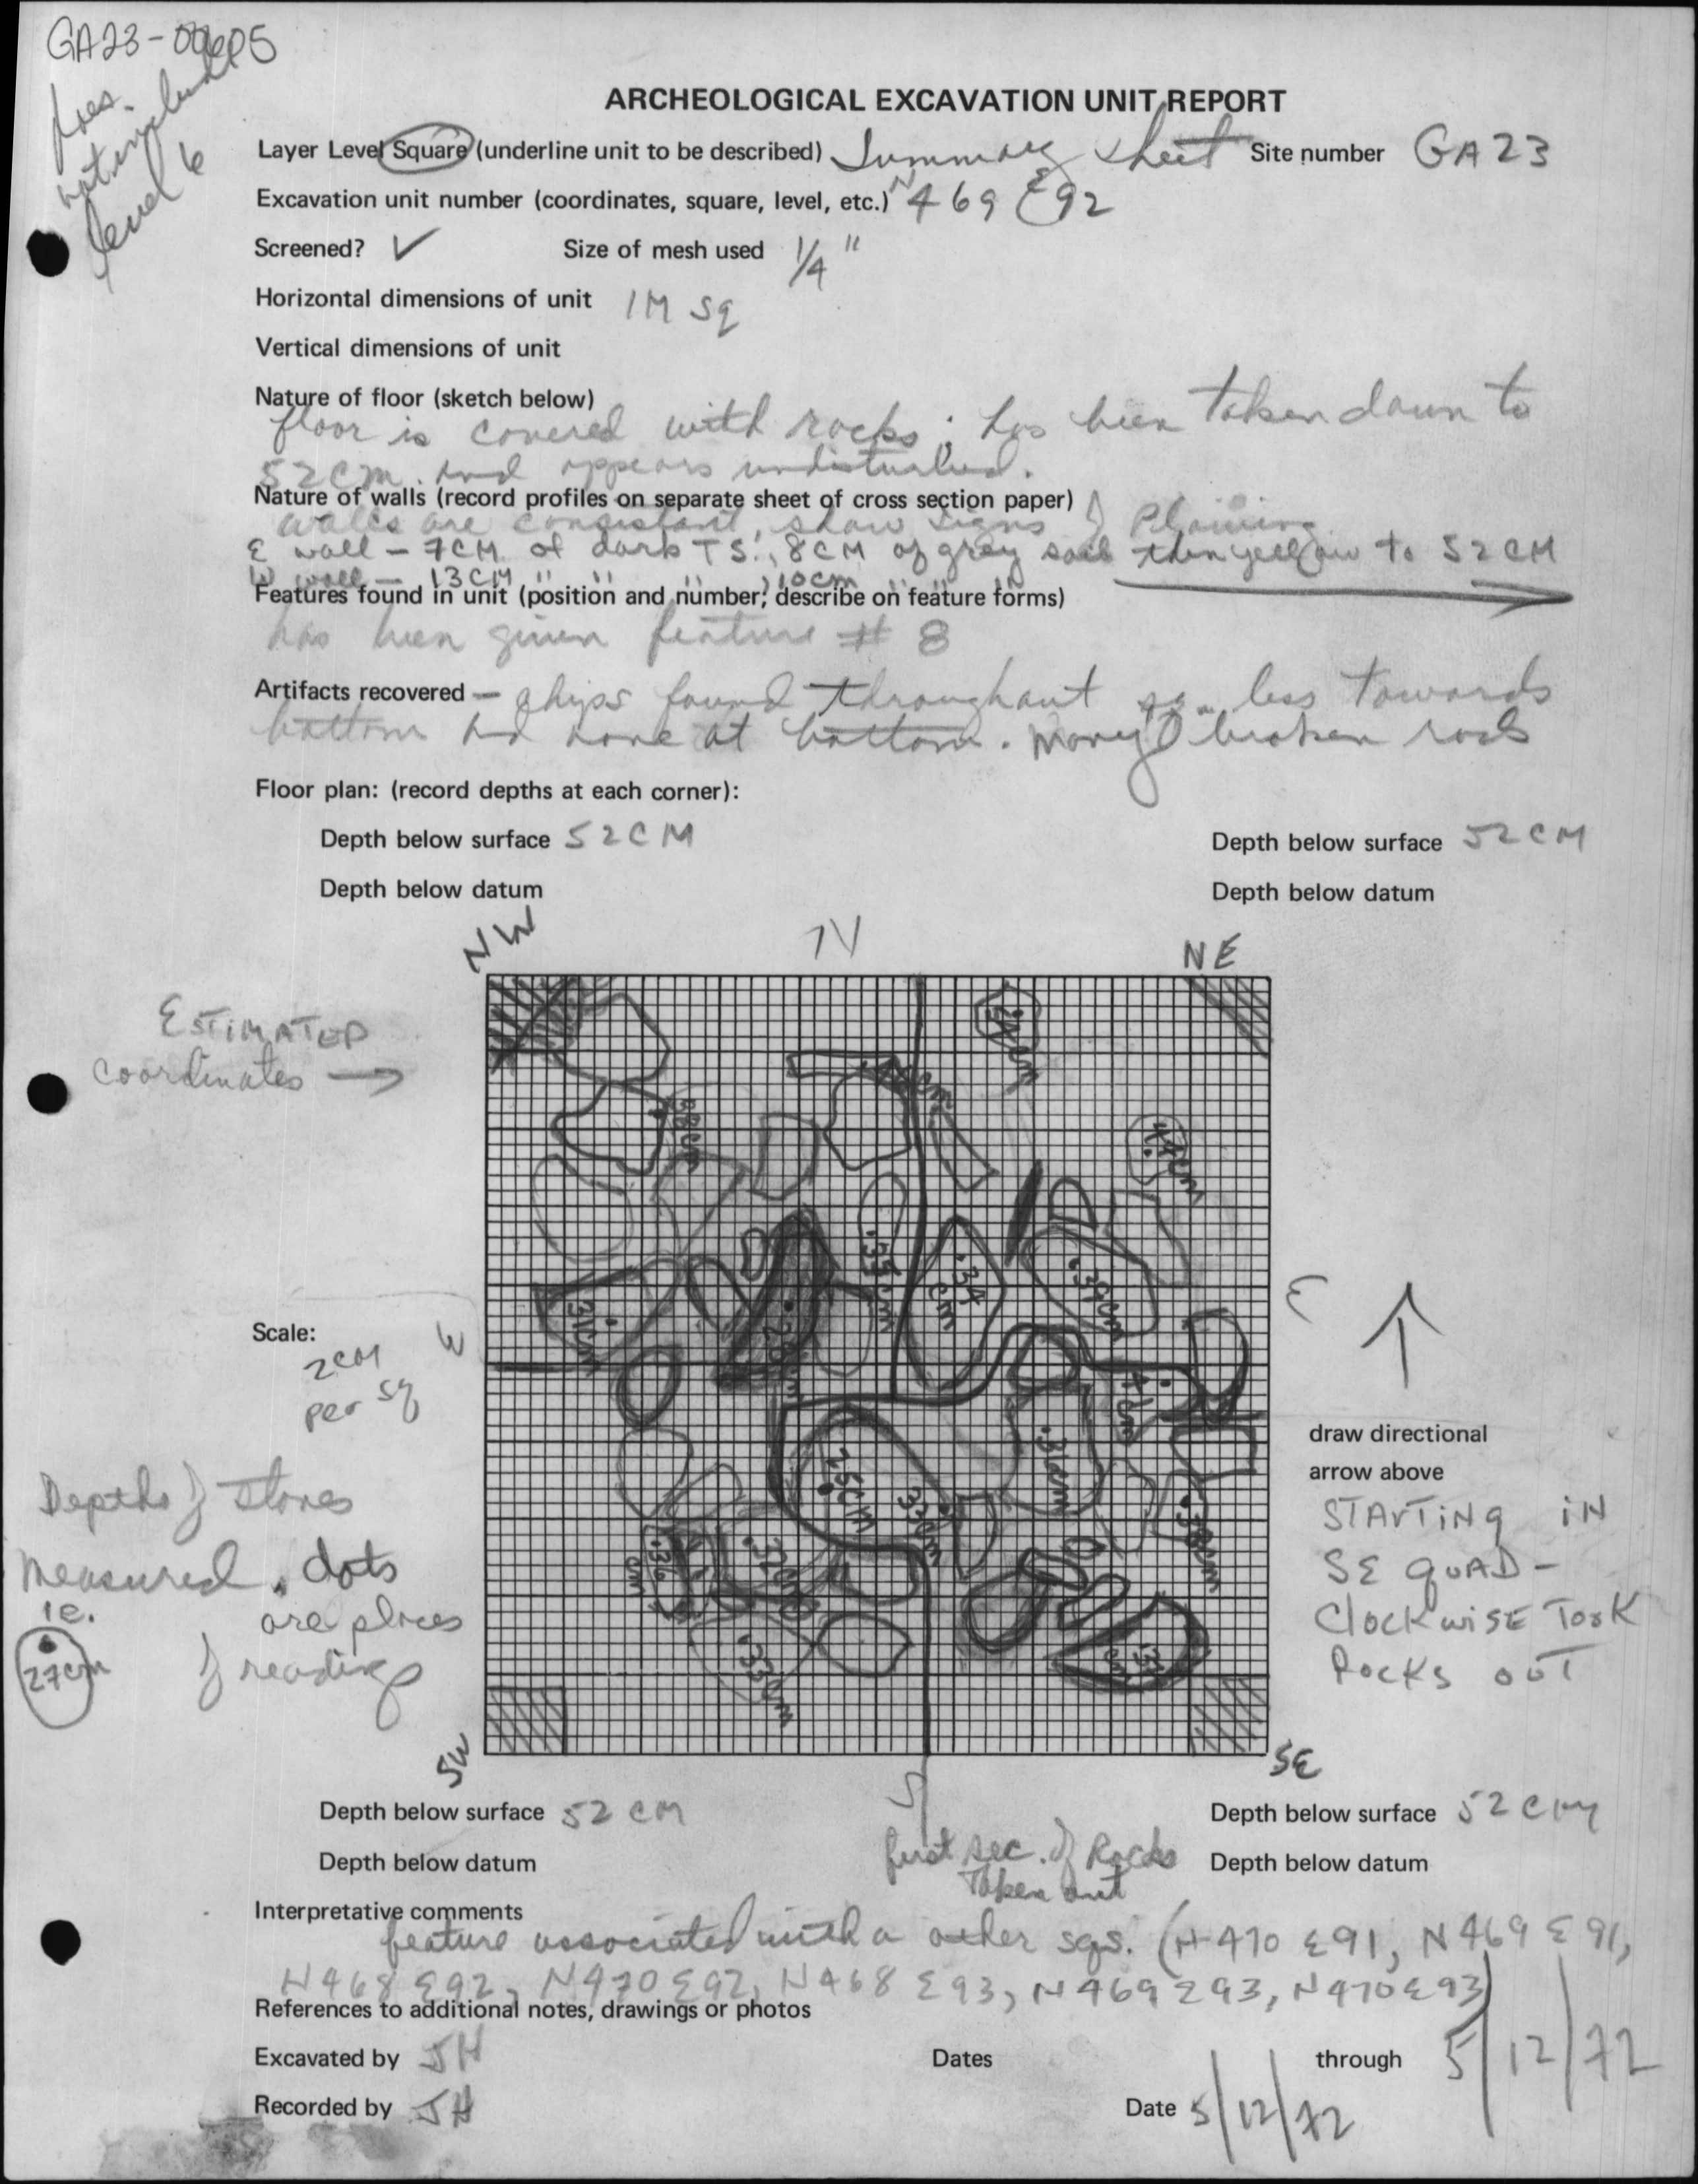 GA23-
does
not include
level 6
ARCHEOLOGICAL EXCAVATION UNIT REPORT
Layer Level Square (underline unit to be described) Summary sheet Site number GA23
Excavation unit number (coordinates, square, level, etc.) N469 E92
Screened? ✓ Size of mesh used 1/4"
Horizontal dimensions of unit 1M Sq
Vertical dimensions of unit
Nature of floor (sketch below)
floor is covered with rocks; has been taken down to
52cm. and appears undisturbed.
Nature of walls (record profiles on separate sheet of cross section paper)
walls are consistant, show signs of Plowing
E wall – 7CM of dark TS., 8CM of grey soil then yellow to 52CM
W wall – 13CM " " " , 10cm " " "
Features found in unit (position and number; describe on feature forms)
has been given feature # 8
Artifacts recovered – chips found throughout sq. less towards
bottom and none at bottom. Many broken rocks
Floor plan: (record depths at each corner):
Depth below surface 52CM Depth below surface 52CM
Depth below datum Depth below datum
NW N NE
ESTIMATED
coordinates →
54cm
46cm
38cm
47cm
35cm
34
cm
39cm
31cm
28cm
W E
Scale:
2CM
per sq
41cm
31cm
25CM
33cm
38cm
36
cm
32cm
33
cm
33cm
draw directional
arrow above
STARTING IN
SE QUAD –
Clockwise Took
Rocks out
Depths of stones
measured. dots
ie. are places
of readings
27cm
SW S SE
Depth below surface 52 CM Depth below surface 52 CM
first sec. of Rocks
Taken out
Depth below datum Depth below datum
Interpretative comments
feature associated with a other sqs. (N470 E91, N469 E91,
N468 E92, N470 E92, N468 E93, N469 E93, N470 E93)
References to additional notes, drawings or photos
Excavated by JH Dates through 5/12/72
Recorded by JH Date 5/12/72